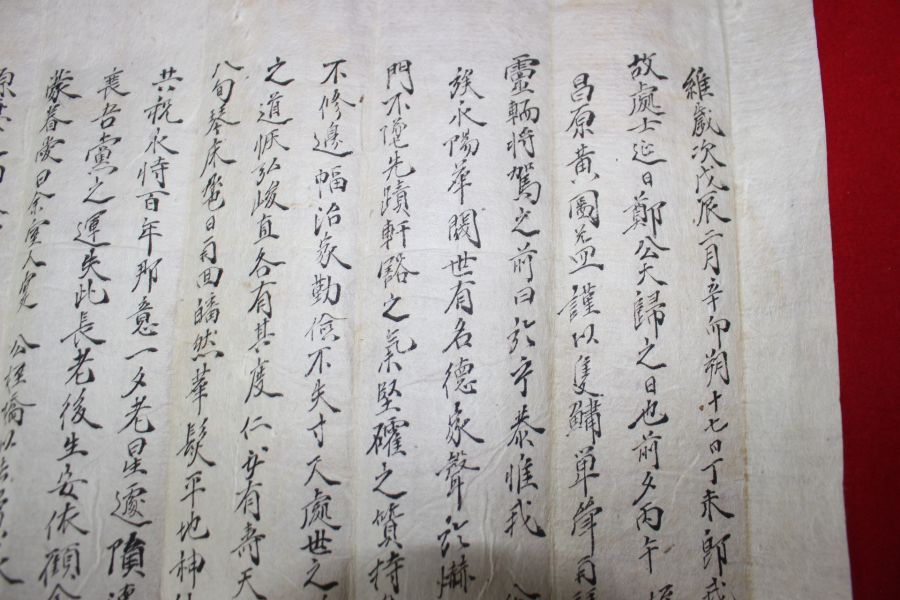 維歲次戊辰二月辛卯朔十七日丁未卽我
故處士延日鄭公大歸之日也前夕丙午
昌原黃圖益謹以隻鷄單聲再
靈輀將駕之前曰於乎恭惟我
族永陽華閥世有名德家聲於爀
門不墮先蹟軒豁之氣堅確之質持
不修邊幅治家勤儉不失寸尺處世之
之道恢弘峻直各有其度仁必有壽天
八旬琴床 日 回皤然華髮平地神
共祝永恃百年那意一夕老星遽隕
喪吾黨之運失此長老後生安依顧余
蒙暮 曰余 人 公 橋以
原